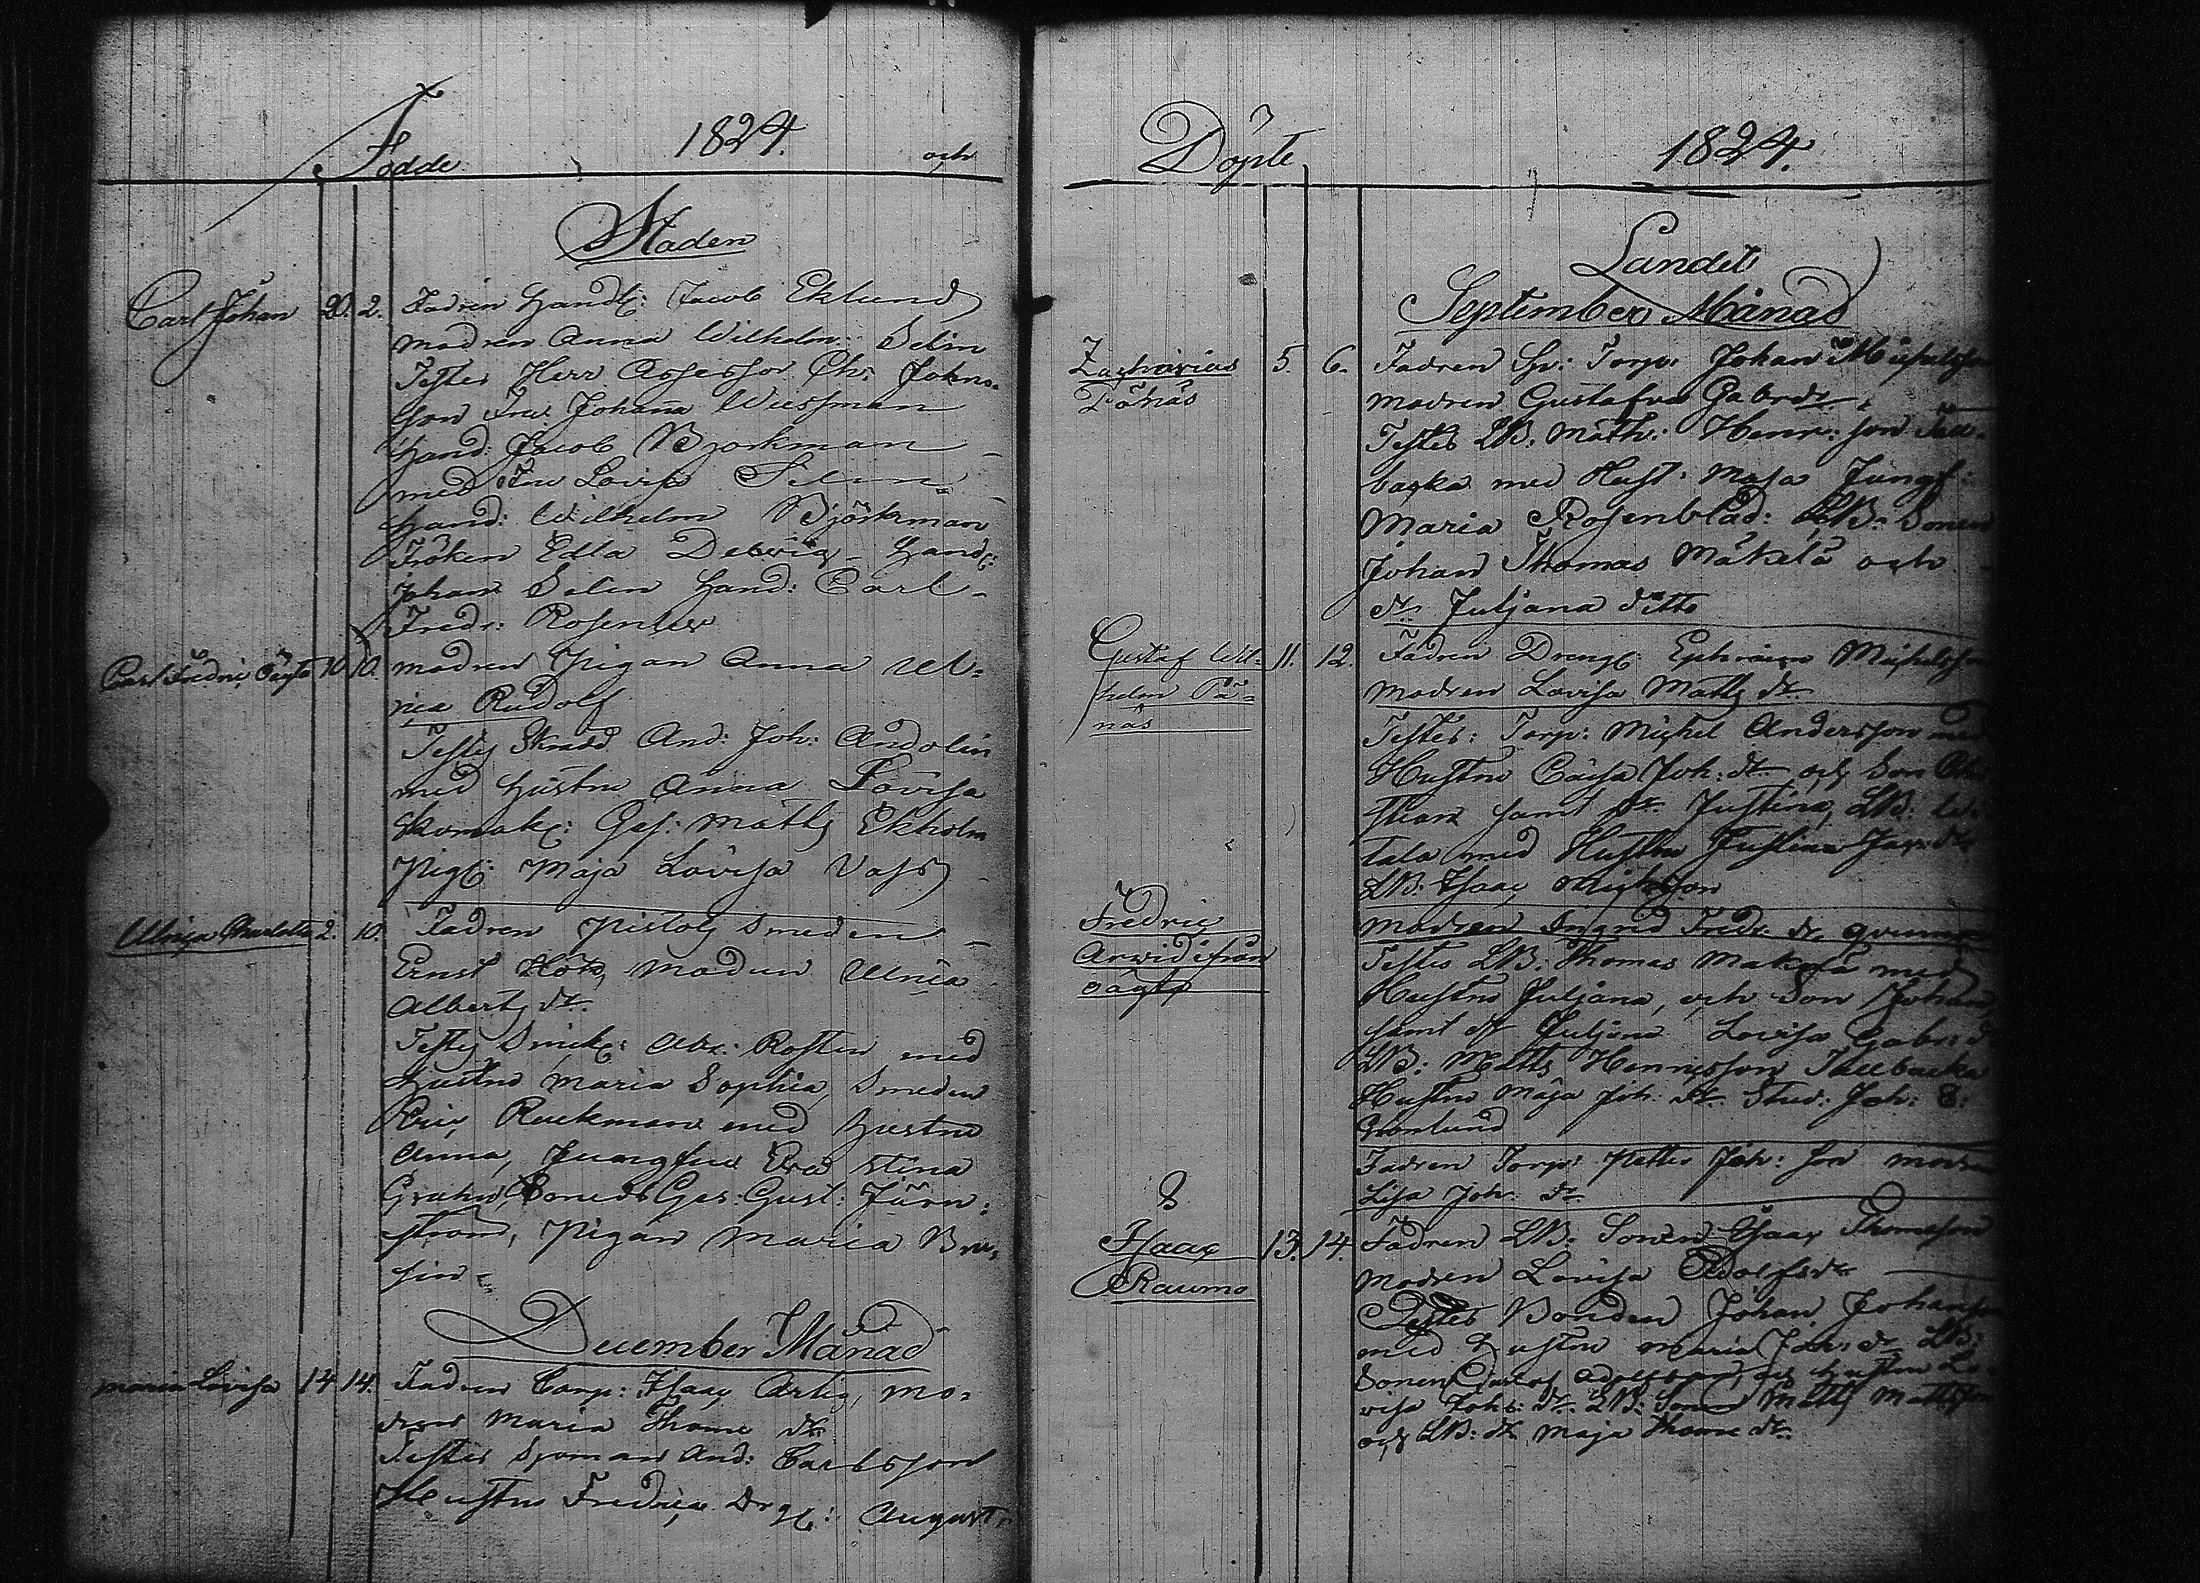 Födde 1824. och
Staden
Carl Johan 20. 2. Fadren Handl: Jacob Eklund
modren Anna Wilhelm: Selin
Testes Herr Assessor Chr: Johns-
son Fru Johanna Wiessman
Hand: Jacob Björkman
med Fru Lovisa Selin
Hand: Wilhelm Björkman
Fröken Edla Detwig Handl:
Johan Selin Hand: Carl
Fredr: Rosenlew
Carl Fredric Oägta 10. 10. modren Pigan Anna Ul-
rica Rudolf
Testes Skradd And: Joh: Andolin
med Hustru Anna Lovisa
Skomak: Ges: Matts Ekholm
Pig: Maja Lovisa Vass
Ulrica Charlotta 2. 10. Fadren Pistols Smeden
Ernst Hök, Modren Ulrica
Alberts dr.
Testes Snick: Abr: Rosten med
Hustru Maria Sophia, Smeden
Eric Ruckman med Hustru
Anna, Jungfru Eva Stina
Grahn, Smeds Ges. Gust: Järn-
ström, Pigan Maria Bru-
sin
December Månad
Maria Lovisa 14 14. Fadren Corp: Isaac Artig, mo-
dren Maria Thome dr
Testes Sjoman And: Carlsson
Hustru Fredrica Dr: August
Döpte 1824.
Landet
September Månad
Zacharias 5. 6. Fadren Torp: Johan Michelsson
Pånäs modren Gustafva Gabr dr
Testes LB. Math: Henr: son Tall-
backa med Hust: Maja Jungf:
Maria Rosenblad: LB: Sonen
Johan Thomas Mäkelä och
dr Juljana ditto
Gustaf Wil- 11. 12. Fadren Dreng: Ephraim Michelsson
helm På- modren Lovisa Matts dr
näs
Testes: Torp: Michel Andersson med
Hustru Caisa Joh: dr och Son
samt dr Justina, LB:
tala med Hustru Justina Jac: dr
LB: Isaac Michelson
Fredric modren Ingrid Fredr dr
Arvid ifrån Testes LB: Thomas Mäkelä med
oägta Hustru Juljana, och Son Johan
samt dr Juljana Lovisa Gabr: d
LB: Matts Hennisson Tallbacka
Hustru Maja Joh: dr Stud: Joh: E:
Gronlund
Fadren Torp: Petter Joh: son modren
Lisa Joh: dr
Isaac 13. 14. Fadren LB: Sonen Isaac Thomeson
Raumo modren Lovisa Adolfs dr
Testes Bonden Johan Johansson
med Hustru Maria Joh: dr LB:
Sonen Gustaf Adolfsson och Hustru Lo-
visa Joh: dr LB: Sonen Matts Mattsson
och LB: dr Maja Thome dr